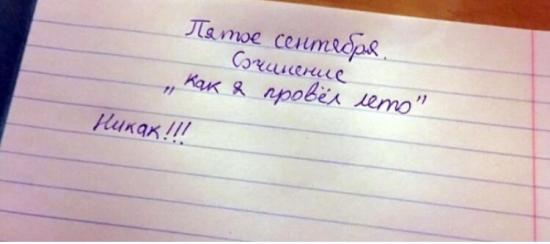 Пятое сентября.
Сочинение
„Как я провёл лето”
Никак!!!